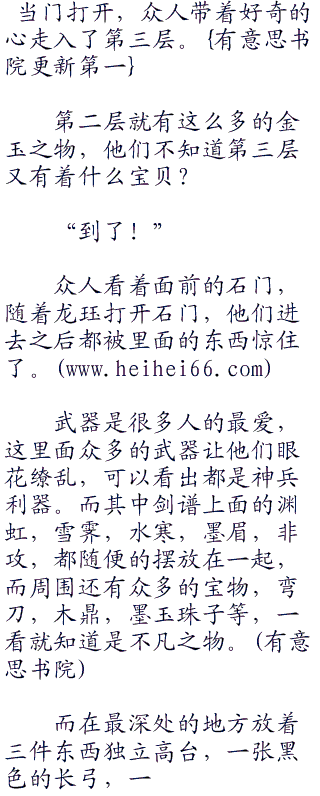 当门打开，众人带着好奇的
心走入了第三层。{有意思书
院更新第一}
第二层就有这么多的金
玉之物，他们不知道第三层
又有着什么宝贝？
“到了！”
众人看着面前的石门，
随着龙珏打开石门，他们进
去之后都被里面的东西惊住
了。(www.heihei66.com)
武器是很多人的最爱，
这里面众多的武器让他们眼
花缭乱，可以看出都是神兵
利器。而其中剑谱上面的渊
虹，雪霁，水寒，墨眉，非
攻，都随便的摆放在一起，
而周围还有众多的宝物，弯
刀，木鼎，墨玉珠子等，一
看就知道是不凡之物。(有意
思书院)
而在最深处的地方放着
三件东西独立高台，一张黑
色的长弓，一